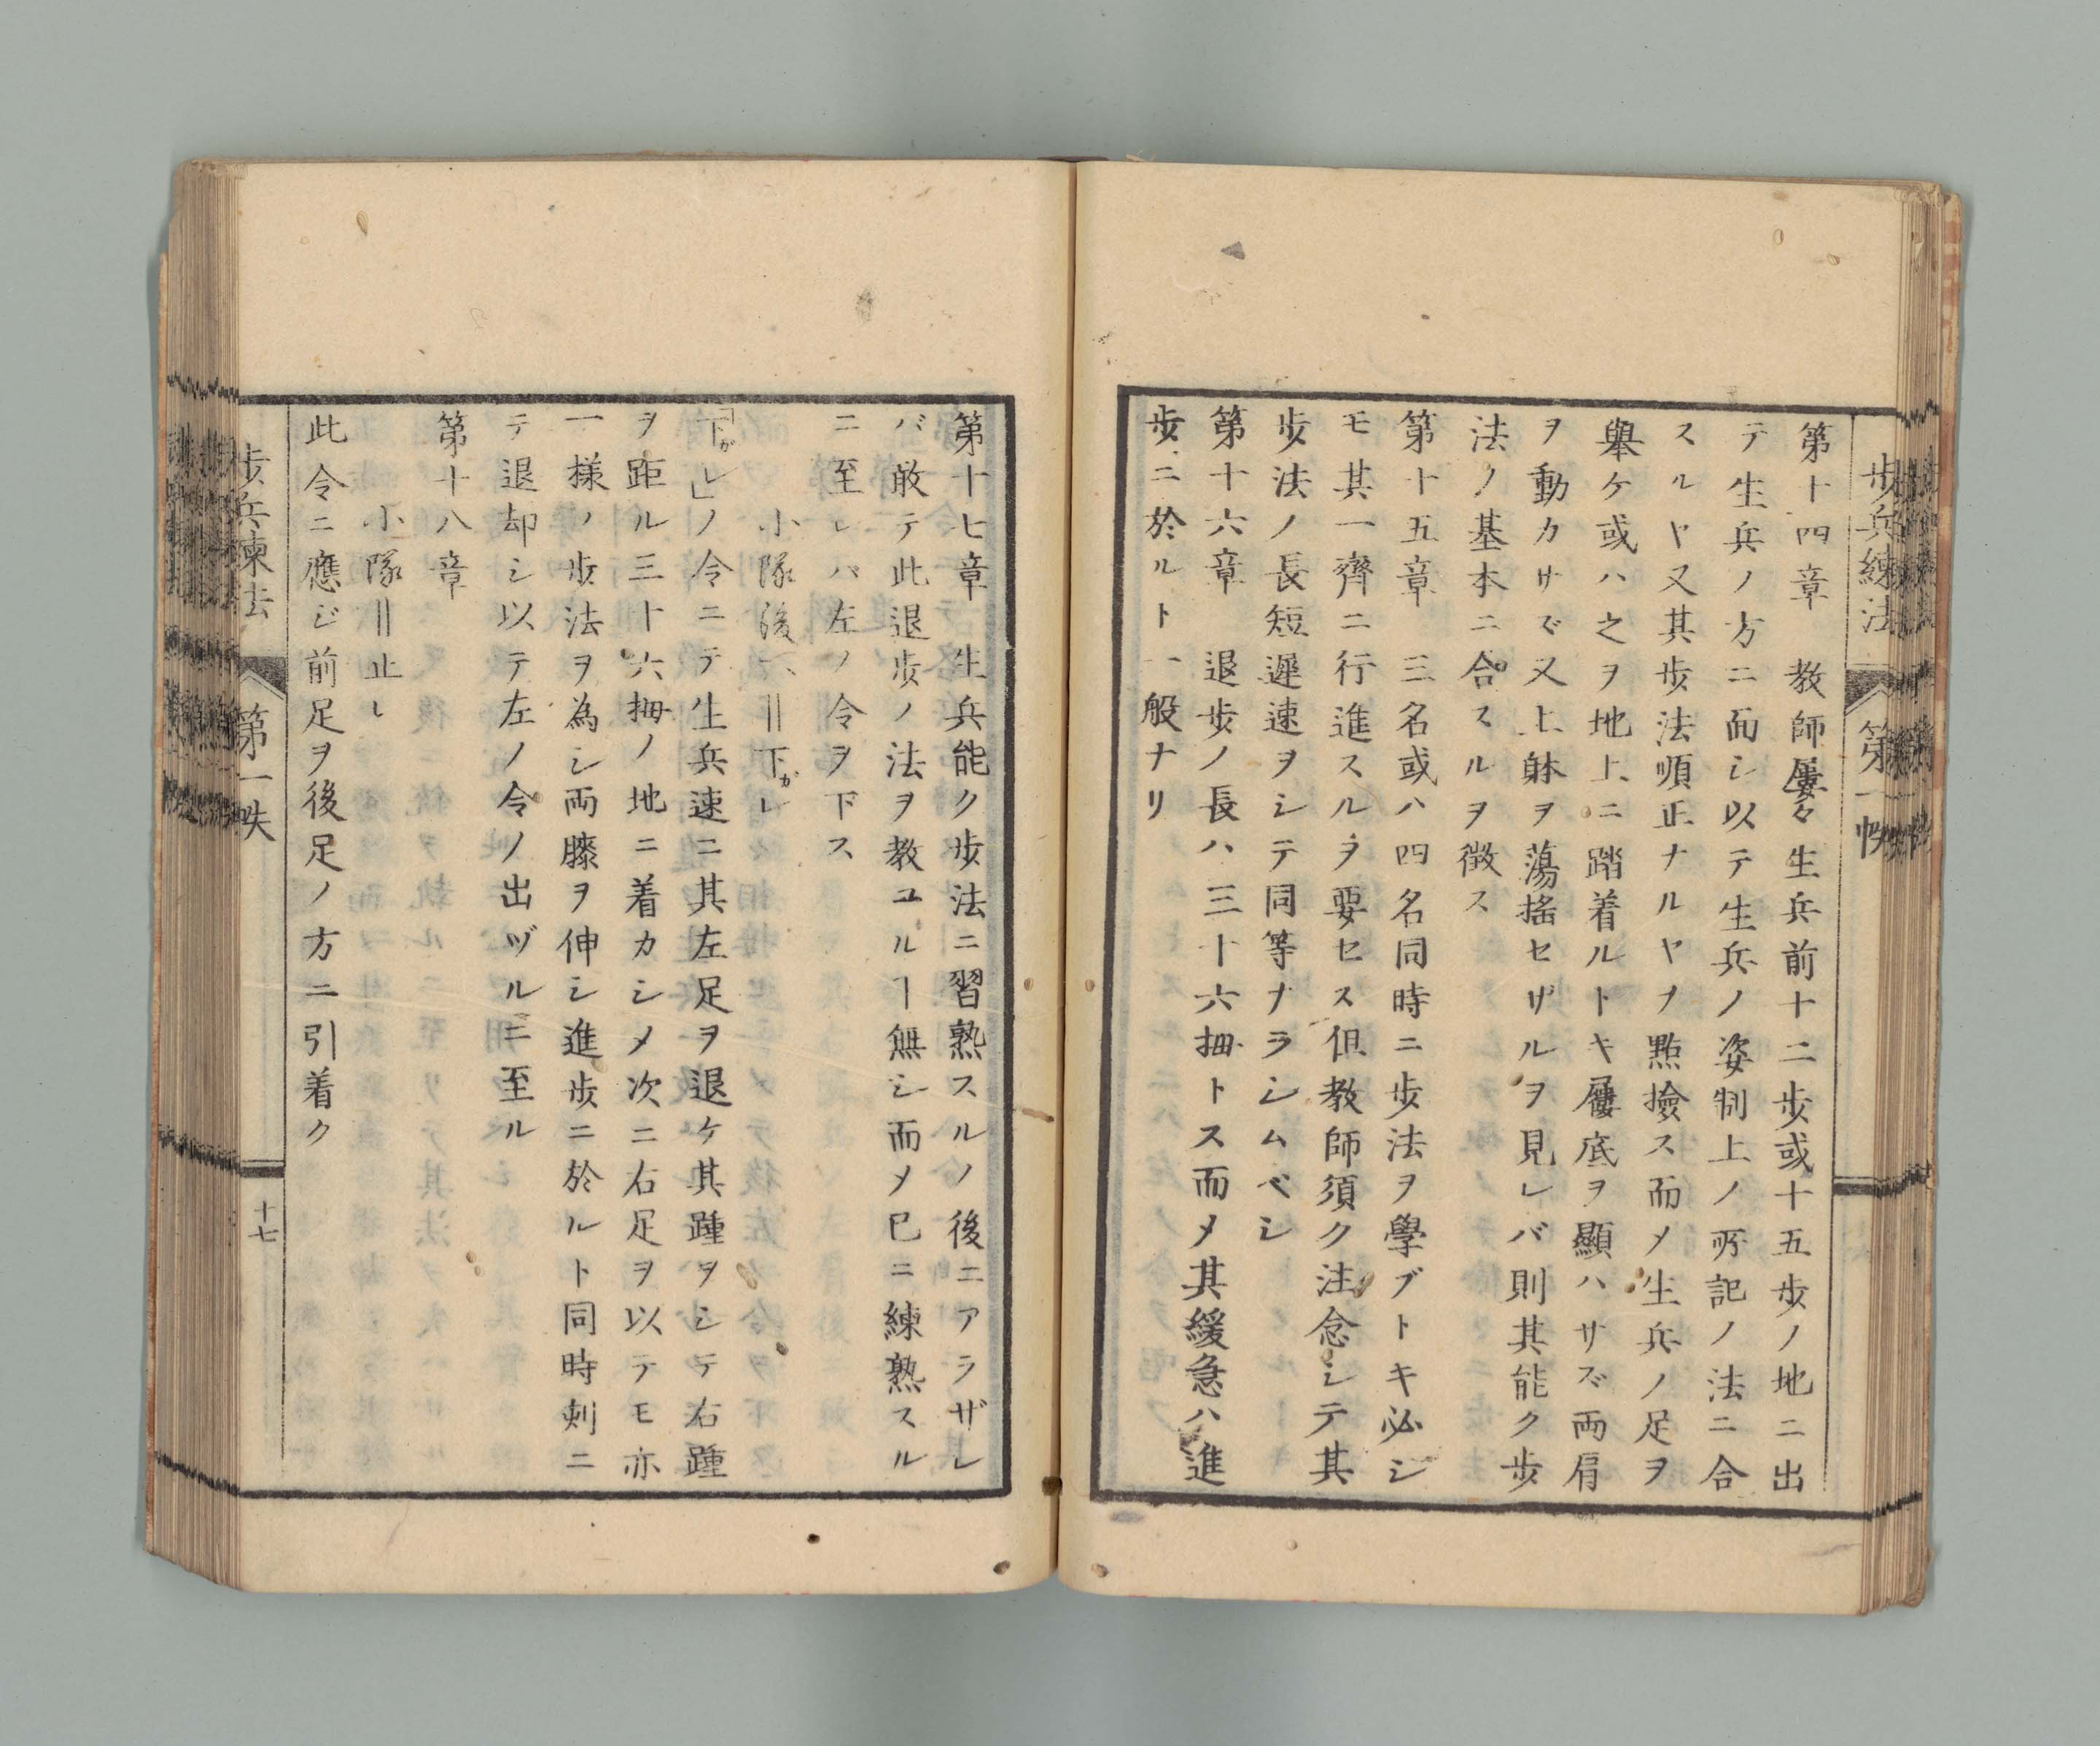 歩兵練法 第一帙
第十四章 教師屢々生兵前十二歩或十五歩ノ地ニ出
テ生兵ノ方ニ面シ以テ生兵ノ姿制上ノ所記ノ法ニ合
スルヤ又其歩法順正ナルヤヲ點撿ス而メ生兵ノ足ヲ
舉ケ或ハ之ヲ地上ニ踏着ルトキ屨底ヲ顯ハサズ両肩
ヲ動カサズ又上躰ヲ蕩搖セザルヲ見レバ則其能ク歩
法ノ基本ニ合スルヲ徴ス
第十五章 三名或ハ四名同時ニ歩法ヲ學ブトキ必シ
モ其一齊ニ行進スルヲ要セス但教師須ク注念シテ其
歩法ノ長短遲速ヲシテ同等ナラシムベシ
第十六章 退歩ノ長ハ三十六拇トス而メ其緩急ハ進
歩ニ於ルト一般ナリ
第十七章 生兵能ク歩法ニ習熟スルノ後ニアラザレ
バ敢テ此退歩ノ法ヲ教ユルヿ無シ而メ已ニ練熟スル
ニ至レバ左ノ令ヲ下ス
小隊後ヘ‖下がレ
「下がレ」ノ令ニテ生兵速ニ其左足ヲ退ケ其踵ヲシテ右踵
ヲ距ル三十六拇ノ地ニ着カシメ次ニ右足ヲ以テモ亦
一様ノ歩法ヲ為シ両膝ヲ伸シ進歩ニ於ルト同時刺ニ
テ退却シ以テ左ノ令ノ出ヅルニ至ル
第十八章
小隊‖止レ
此令ニ應ジ前足ヲ後足ノ方ニ引着ク
歩兵練法 第一帙 十七